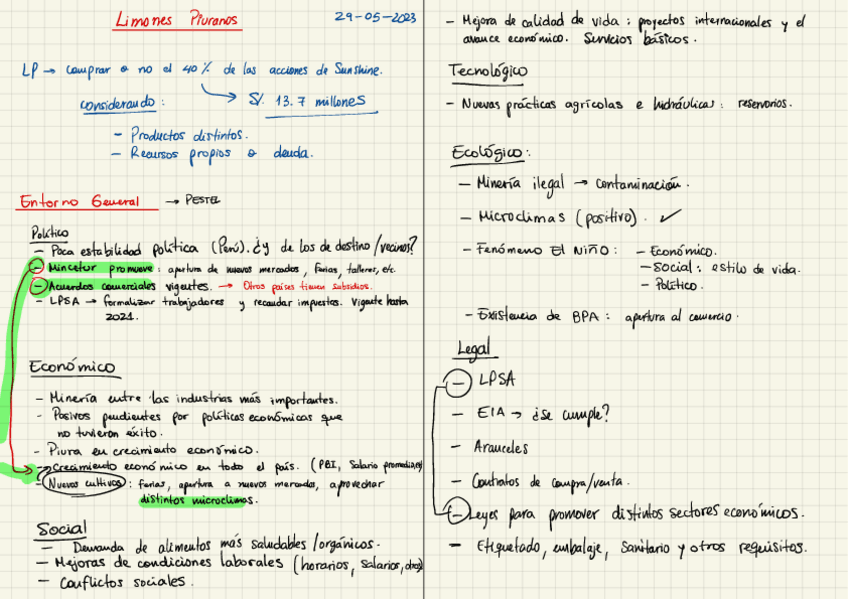 Limones Piuranos
29-05-2023
LP → comprar o no el 40% de las acciones de Sunshine.
considerando:
S/. 13.7 millones
- Productos distintos.
- Recursos propios o deuda.
Entorno General → PESTEL
Político
- Poca estabilidad política (Perú). ¿y de los de destino/vecinos?
- Mincetur promueve: apertura de nuevos mercados, ferias, talleres, etc.
- Acuerdos comerciales vigentes. → Otros países tienen subsidios.
- LPSA → formalizar trabajadores y recaudar impuestos. Vigente hasta
2021.
Económico
- Minería entre las industrias más importantes.
- Pasivos pendientes por políticas económicas que
no tuvieron éxito.
- Piura en crecimiento económico.
- Crecimiento económico en todo el país. (PBI, Salario promedio,
- Nuevos cultivos: ferias, apertura a nuevos mercados, aprovechar
distintos microclimas.
Social
- Demanda de alimentos más saludables/orgánicos.
- Mejoras de condiciones laborales (horarios, salarios,
- Conflictos sociales.
- Mejora de calidad de vida: proyectos internacionales y el
avance económico. Servicios básicos.
Tecnológico
- Nuevas prácticas agrícolas e hidráulicas: reservorios.
Ecológico:
- Minería ilegal → contaminación.
- Microclimas (positivo). ✓
- Fenómeno El Niño: - Económico.
- Social: estilo de vida.
- Político.
- Existencia de BPA: apertura al comercio.
Legal
- LPSA
- EIA → ¿se cumple?
- Aranceles
- Contratos de compra/venta.
- Leyes para promover distintos sectores económicos.
- Etiquetado, embalaje, Sanitario y otros requisitos.